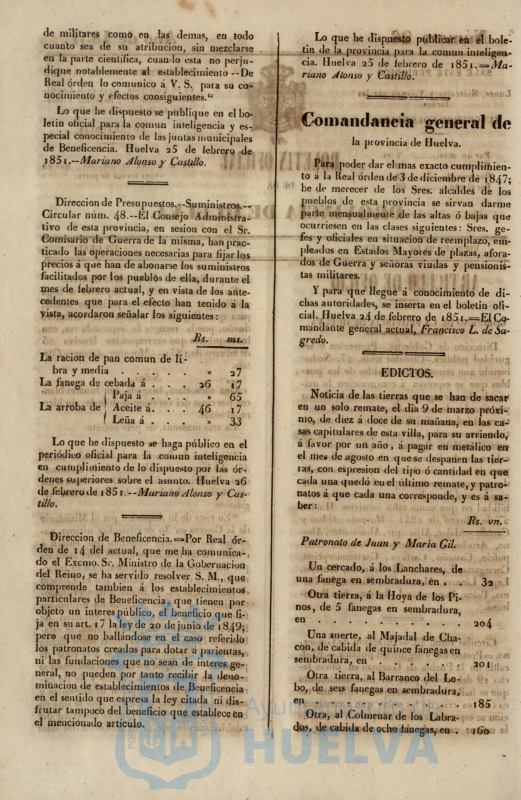 de militares como en las demas, en todo
cuanto sea de su atribucion, sin mezclarse
en la parte científica, cuando esta no perju-
dique notablemente al establecimiento--De
Real órden lo comunico á V. S. para su co-
nocimiento y efectos consiguientes.“
Lo que he dispuesto se publique en el bo-
letin oficial para la comun inteligencia y es-
pecial conocimiento de las juntas municipales
de Beneficencia. Huelva 25 de febrero de
1851.--Mariano Alonso y Castillo.
Direccion de Presupuestos.--Suministros.--
Circular núm. 48.--El Consejo Administra-
tivo de esta provincia, en sesion con el Sr.
Comisario de Guerra de la misma, han prac-
ticado las operaciones necesarias para fijar los
precios á que han de abonarse los suministros
facilitados por los pueblos de ella, durante el
mes de febrero actual, y en vista de los ante-
cedentes que para el efecto han tenido á la
vista, acordaron señalar los siguientes:
Rs. ms.
La racion de pan comun de li-
bra y media . . . . . » 27
La fanega de cebada á . . . 26 17
Paja á . . » 65
La arroba de Aceite á. . . 46 17
Leña á . . . » 33
Lo que he dispuesto se haga público en el
periódico oficial para la comun inteligencia
en cumplimiento de lo dispuesto por las ór-
denes superiores sobre el asunto. Huelva 26
de febrero de 1851.--Mariano Alonso y Cas-
tillo.
Direccion de Beneficencia.=Por Real ór-
den de 14 del actual, que me ha comunica-
do el Excmo. Sr. Ministro de la Gobernacion
del Reino, se ha servido resolver S. M., que
comprende tambien á los establecimientos
particulares de Beneficencia, que tienen por
objeto un interes público, el beneficio que fi-
ja en su art. 17 la ley de 20 de junio de 1849;
pero que no hallándose en el caso referido
los patronatos creados para dotar á parientas,
ni las fundaciones que no sean de interes ge-
neral, no pueden por tanto recibir la deno-
minacion de establecimientos de Beneficencia
en el sentido que espresa la ley citada ni dis-
frutar tampoco del beneficio que establece en
el mencionado artículo.
Lo que he dispuesto publicar en el bole-
tin de la provincia para la comun inteligen-
cia. Huelva 25 de febrero de 1851.=Ma-
riano Alonso y Castillo.
Comandancia general de
la provincia de Huelva.
Para poder dar el mas exacto cumplimien-
to á la Real órden de 3 de diciembre de 1847;
he de merecer de los Sres. alcaldes de los
pueblos de esta provincia se sirvan darme
parte mensualmente de las altas ó bajas que
ocurriesen en las clases siguientes: Sres. ge-
fes y oficiales en situacion de reemplazo, em-
pleados en Estados Mayores de plazas, afora-
dos de Guerra y señoras viudas y pensionis-
tas militares.
Y para que llegue á conocimiento de di-
chas autoridades, se inserta en el boletin ofi-
cial. Huelva 24 de febrero de 1851.=El Co-
mandante general actual, Francisco L. de Sa-
gredo.
EDICTOS.
Noticia de las tierras que se han de sacar
en un solo remate, el dia 9 de marzo próxi-
mo, de diez á doce de su mañana, en las ca-
sas capitulares de esta villa, para su arriendo,
á favor por un año, á pagar en metálico en
el mes de agosto en que se despajen las tier-
ras, con espresion del tipo ó cantidad en que
cada una quedó en el último remate, y patro-
natos á que cada una corresponde, y es á sa-
ber:
Rs. vn.
Patronato de Juan y Maria Gil.
Un cercado, á los Lanchares, de
una fanega en sembradura, en . . 32
Otra tierra, á la Hoya de los Pi-
nos, de 5 fanegas en sembradura,
en . . . . . . . . . . 204
Una suerte, al Majadal de Cha-
con, de cabida de quince fanegas en
sembradura, en . . . . . . 201
Otra tierra, al Barranco del Lo-
bo, de seis fanegas en sembradura,
en . . . . . . . . . . 185
Otra, al Colmenar de los Labra-
dos, de cabida de ocho fanegas, en . 160
Ayuntamiento de
HUELVA